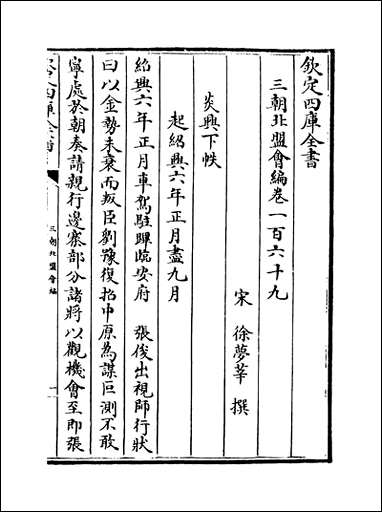 欽定四庫全書
三朝北盟會編卷一百六十九
宋 徐夢莘 撰
炎興下帙
起紹興六年正月盡九月
紹興六年正月車駕駐蹕臨安府 張俊出視師行狀
曰以金勢未衰而叛臣劉豫復招中原為謀叵測不敢
寧處於朝奏請親行邊寨部分諸將以觀機會至即張
三朝北盟會編